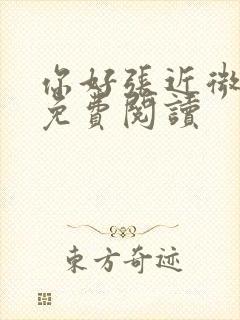 你好張近微
免費閱讀
東方奇迹